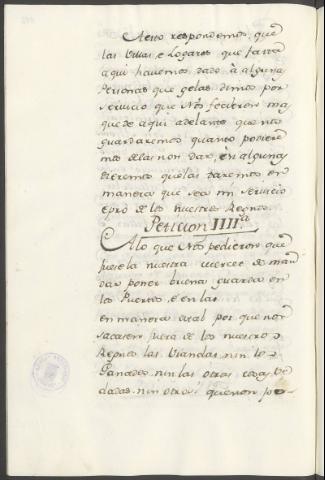 A esto respondemos, que
las Villas, e Logares que fasta
aqui havemos dado à algunas
Personas que gelas dimos por
servicio que Nos fecieron mas
que de aqui adelante que nos
guardaremos quanto podiere
mos delas non dar, è n algunas
dieremos que las daremos en
manera que sea mi servicio
epró de los nuestros Regnos.
Peticion IIII.ª
A lo que Nos pedieron que
fuese la nuestra merced de man
dar poner buena guarda en
los Puertos, è en las
en manera atal por que non
sacasen fuera de los nuestros
Regnos las Viandas, nin los
Ganados, nin las otras cosas Ve
dadas, nin otrosi quieran po-